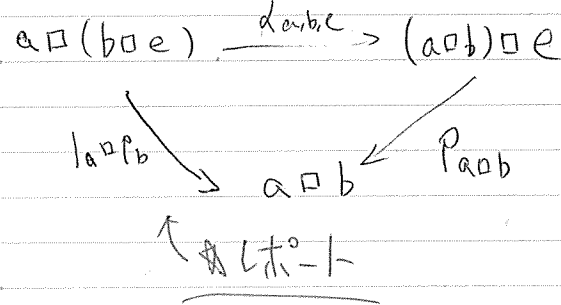 a□(b□e) α_{a,b,e} → (a□b)□e
1_a□ρ_b ρ_{a□b}
a□b
レポート